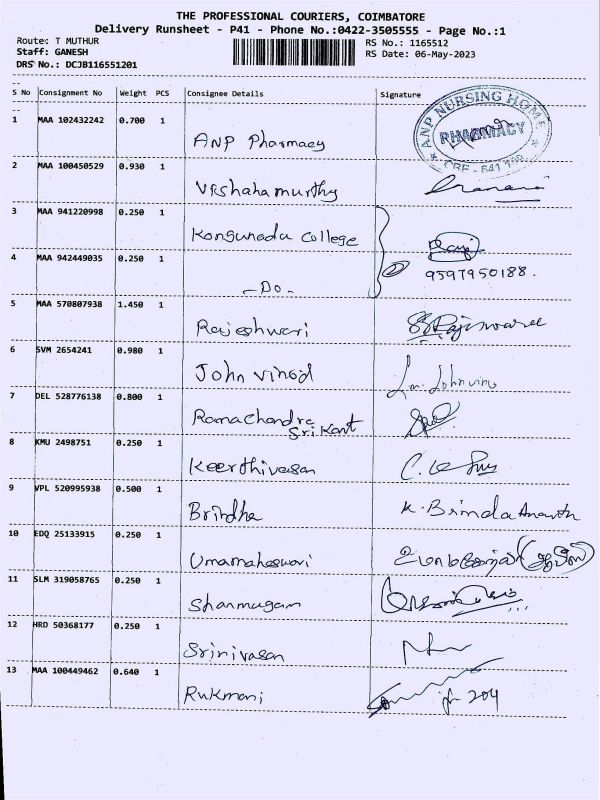 THE PROFESSIONAL COURIERS, COIMBATORE
Delivery Runsheet - P41 - Phone No.:0422-3505555 - Page No.:1
Route: T MUTHUR RS No.: 1165512
Staff: GANESH RS Date: 06-May-2023
DRS No.: DCJB116551201
S No Consignment No Weight PCS Consignee Details Signature
ANP NURSING HOME
PHARMACY
1 MAA 102432242 0.700 1 ANP Pharmacy
2 MAA 100450529 0.930 1
3 MAA 941220998 0.250 1 Kongunadu College
4 MAA 942449035 0.250 1 -Do- 9597950188.
5 MAA 570807938 1.450 1 Rajeshwari
6 SVM 2654241 0.980 1 John vinod
7 DEL 528776138 0.800 1 Ramachandra
Srikant
8 KMU 2498751 0.250 1 Keerthivasan
9 VPL 520995938 0.500 1 Brindha K. Brinda Ananth
10 EDQ 25133915 0.250 1 Umamaheswari
11 SLM 319058765 0.250 1 Shanmugam
12 HRD 50368177 0.250 1 Srinivasan
13 MAA 100449462 0.640 1 Rukmani 204